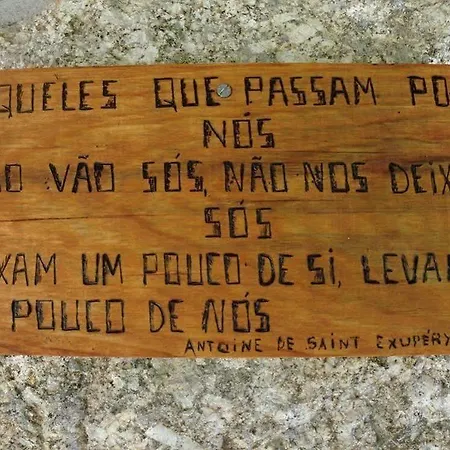 QUELES QUE PASSAM PO
NÓS
O VÃO SÓS, NÃO NOS DEIX
SÓS
XAM UM POUCO DE SI, LEVA
POUCO DE NÓS
ANTOINE DE SAINT EXUPÉRY